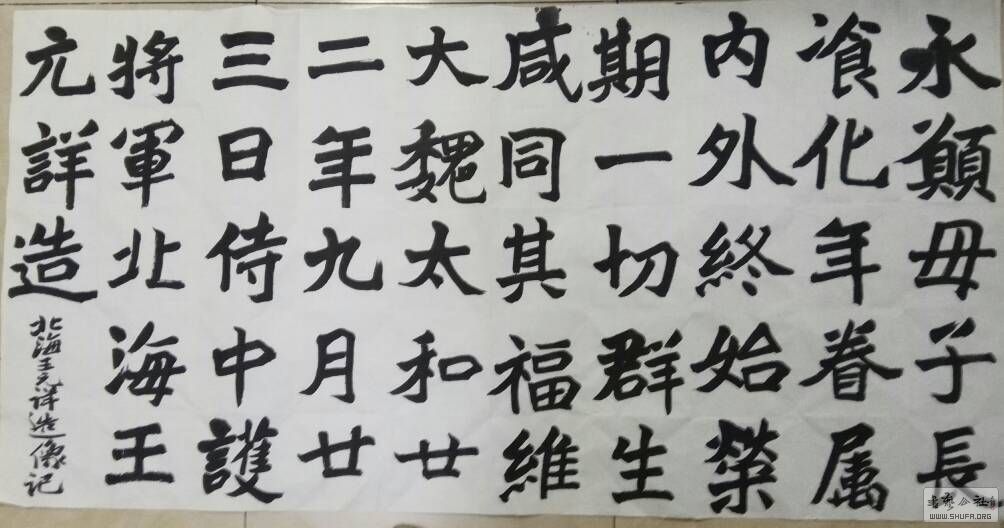 永願母子長
飡化年眷属
内外終始榮
期一切群生
咸同其福維
大魏太和廿
二年九月廿
三日侍中護
將軍北海王
元詳造
北海王元详造像记
WWW.SHUFA.ORG